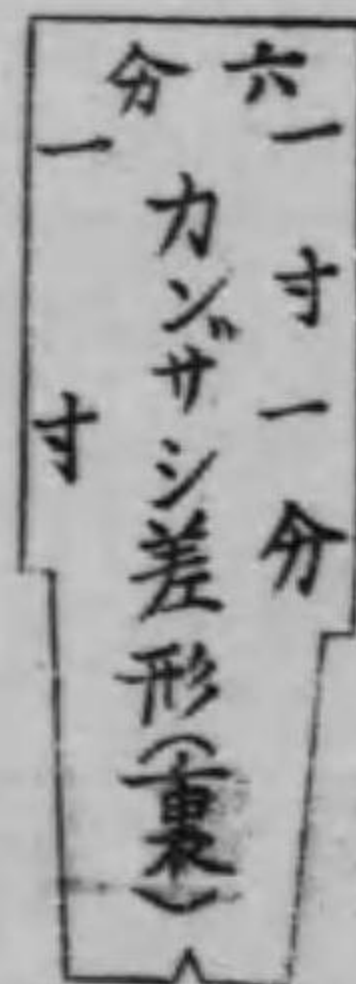 六分
一寸一分
カンザシ差形(裏)
一寸